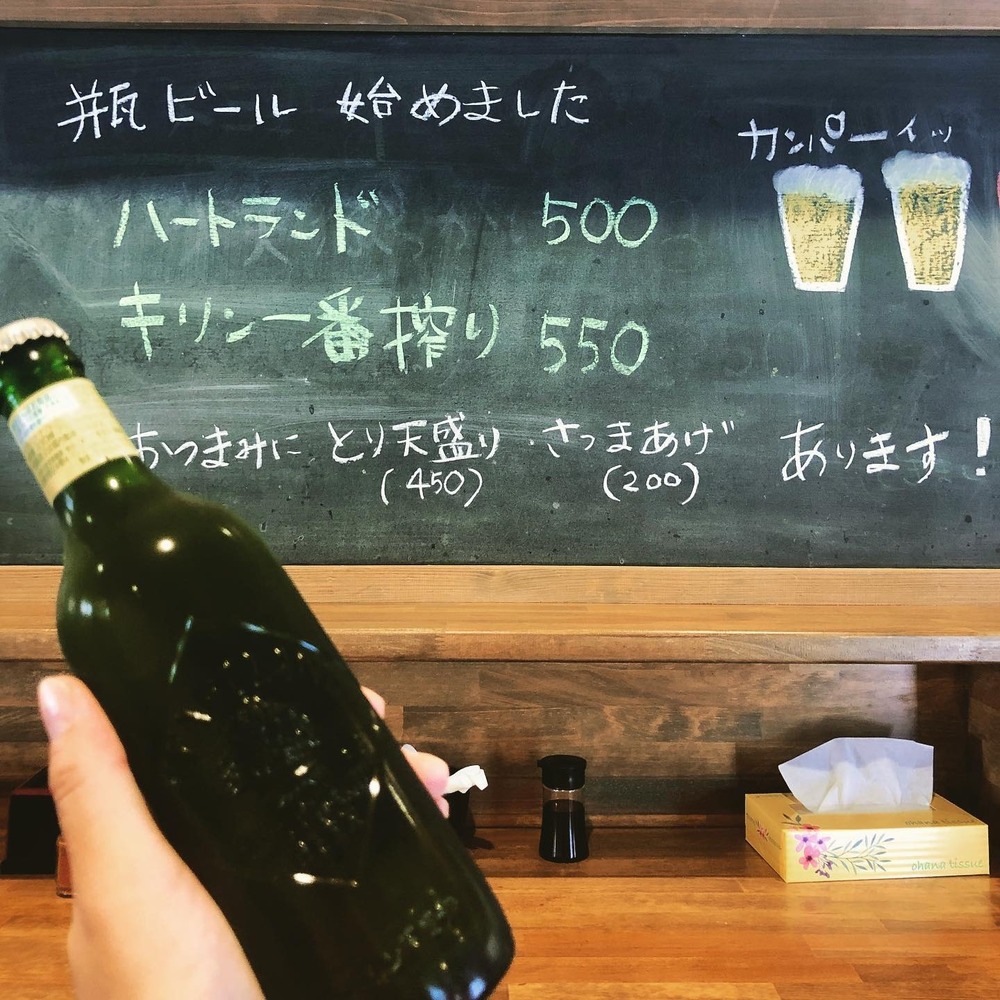 瓶ビール 始めました
カンパーイッ
ハートランド 500
キリン一番搾り 550
おつまみに とり天盛り ・さつまあげ あります!
(450) (200)
ohana tissue
ohana tissue